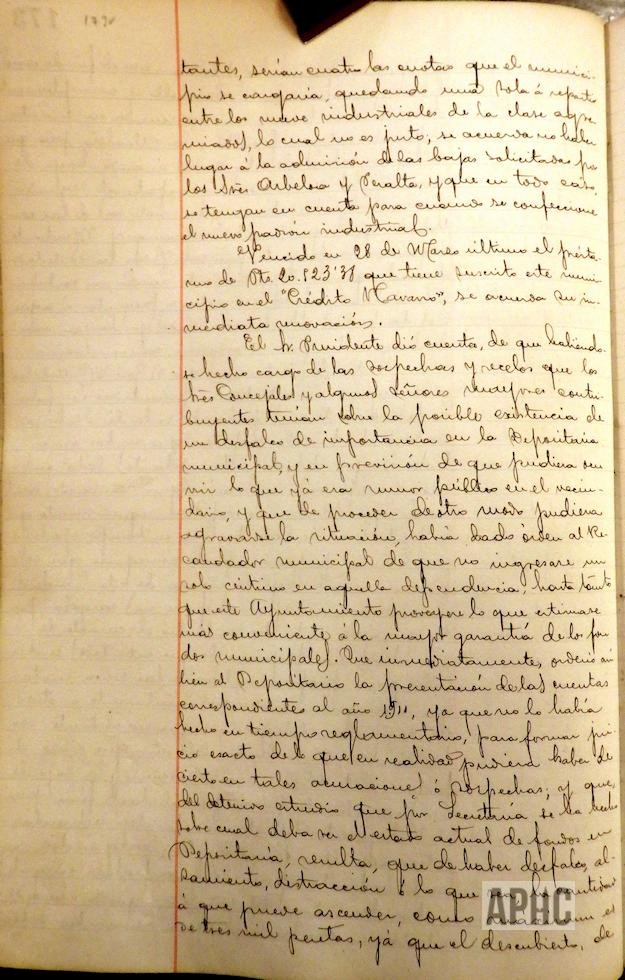 179v
tantes, serían cuatro las cuotas que el munici-
pio se cargaría, quedando una sola á repartir
entre los nueve industriales de la clase agre-
miados, lo cual no es justo; se acuerda no haber
lugar á la admisión de las bajas solicitadas por
los Sres Arbeloa y Peralta, y que en todo caso,
se tengan en cuenta para cuando se confeccione
el nuevo padrón industrial.
Vencido en 28 de Marzo último el présta-
mo de Pts. 20.823'38 que tiene suscrito este muni-
cipio en el "Crédito Navarro", se acuerda su in-
mediata renovación.
El Sr. Presidente dió cuenta, de que habiendo-
se hecho cargo de las sospechas y recelos que los
tres Concejales y algunos señores mayores contri-
buyentes tenían sobre la posible existencia de
un desfalco de importancia en la Depositaria
municipal, y en previsión de que pudiera ocu-
rrir lo que yá era rumor público en el vecin-
dario, y que de proceder de otro modo pudiera
agravarse la situación, había dado órden al Re-
caudador municipal de que no ingresare un
solo céntimo en aquella dependencia, hasta tanto
que este Ayuntamiento proveyere lo que estimase
más conveniente á la mayor garantiá de los fon-
dos municipales. Que inmediatamente, ordenó tam-
bién al Depositario la presentación de las cuentas
correspondientes al año 1911, ya que no lo había
hecho en tiempo reglamentario, para formar jui-
cio exacto de lo que en realidad pudiera haber de
cierto en tales acusaciones ó sospechas; y que,
del detenido estudio que por Secretaría se ha hecho
sobre cual deba ser el estado actual de fondos en
Depositaría, resulta, que de haber desfalco, al-
zamiento, distracción ó lo que sea, la cantidad
á que puede ascender, como maximum es
de tres mil pesetas, yá que el descubierto, de
APHC